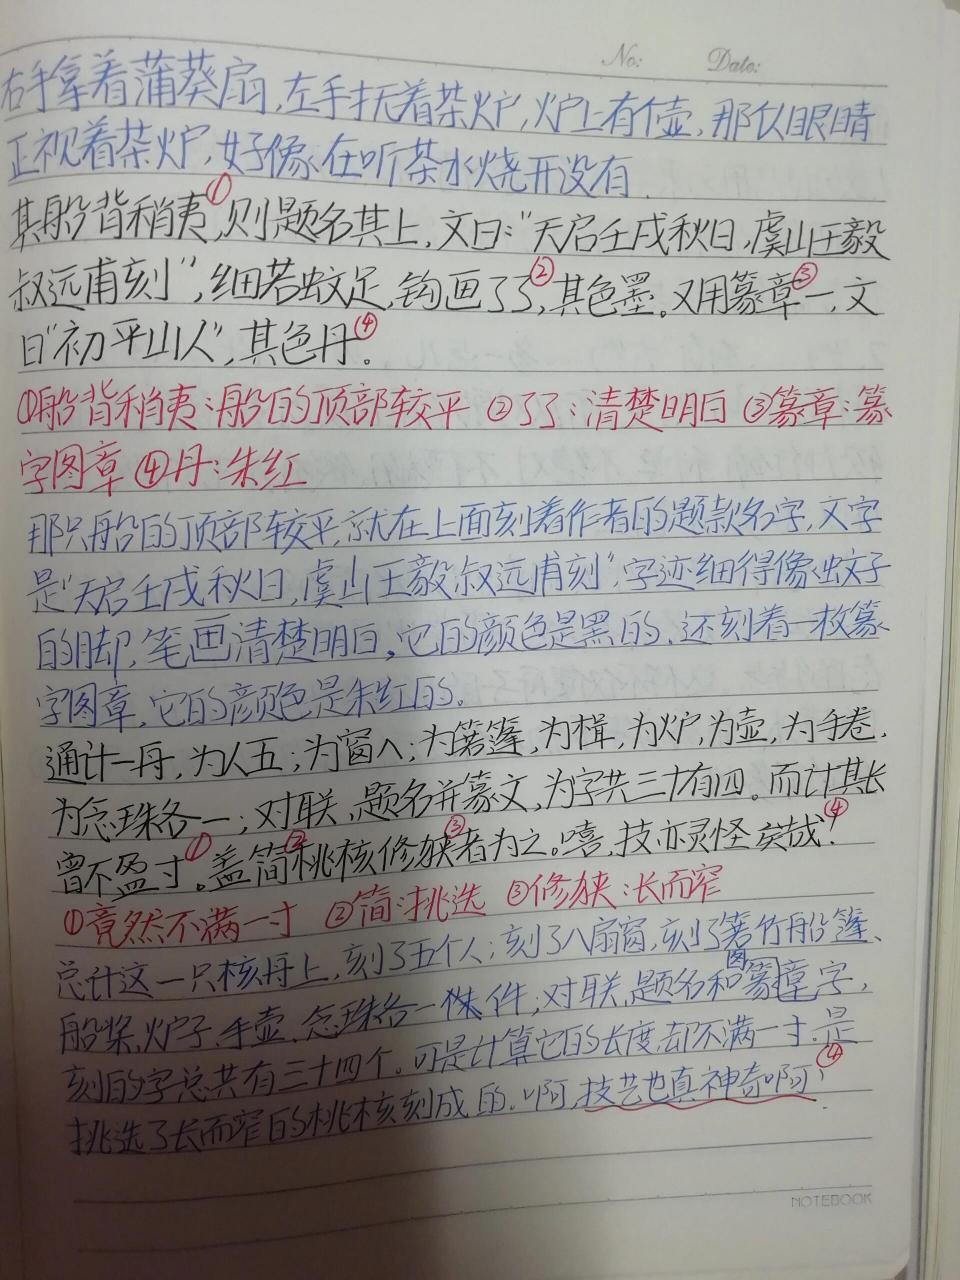 No: Date:
右手拿着蒲葵扇,左手抚着茶炉,炉上有个壶,那似眼睛
正视着茶炉,好像在听茶水烧开没有.
其船背稍夷①,则题名其上,文曰:“天启壬戌秋日,虞山王毅
叔远甫刻”,细若蚊足,钩画了了②,其色墨。又用篆章③一,文
曰“初平山人”,其色丹④。
①船背稍夷:船的顶部较平 ②了了:清楚明白 ③篆章:篆
字图章 ④丹:朱红
那只船的顶部较平,就在上面刻着作者的题款名字,文字
是“天启壬戌秋日,虞山王毅叔远甫刻”,字迹细得像蚊子
的脚,笔画清楚明白,它的颜色是黑的.还刻着一枚篆
字图章,它的颜色是朱红的.
通计一舟,为人五;为窗八;为箬篷,为楫,为炉,为壶,为手卷,
为念珠各一;对联,题名并篆文,为字共三十有四。而计其长
曾不盈寸①。盖简②桃核修狭③者为之。嘻,技亦灵怪矣哉④!
①竟然不满一寸 ②简:挑选 ③修狭:长而窄
总计这一只核舟上,刻了五个人;刻了八扇窗,刻了箬竹船篷、
船桨,炉子,手壶、念珠各一件;对联,题名和篆图章字,
刻的字总共有三十四个。可是计算它的长度,却不满一寸.是
挑选了长而窄的桃核刻成的.啊,技艺也真神奇啊④!
NOTEBOOK